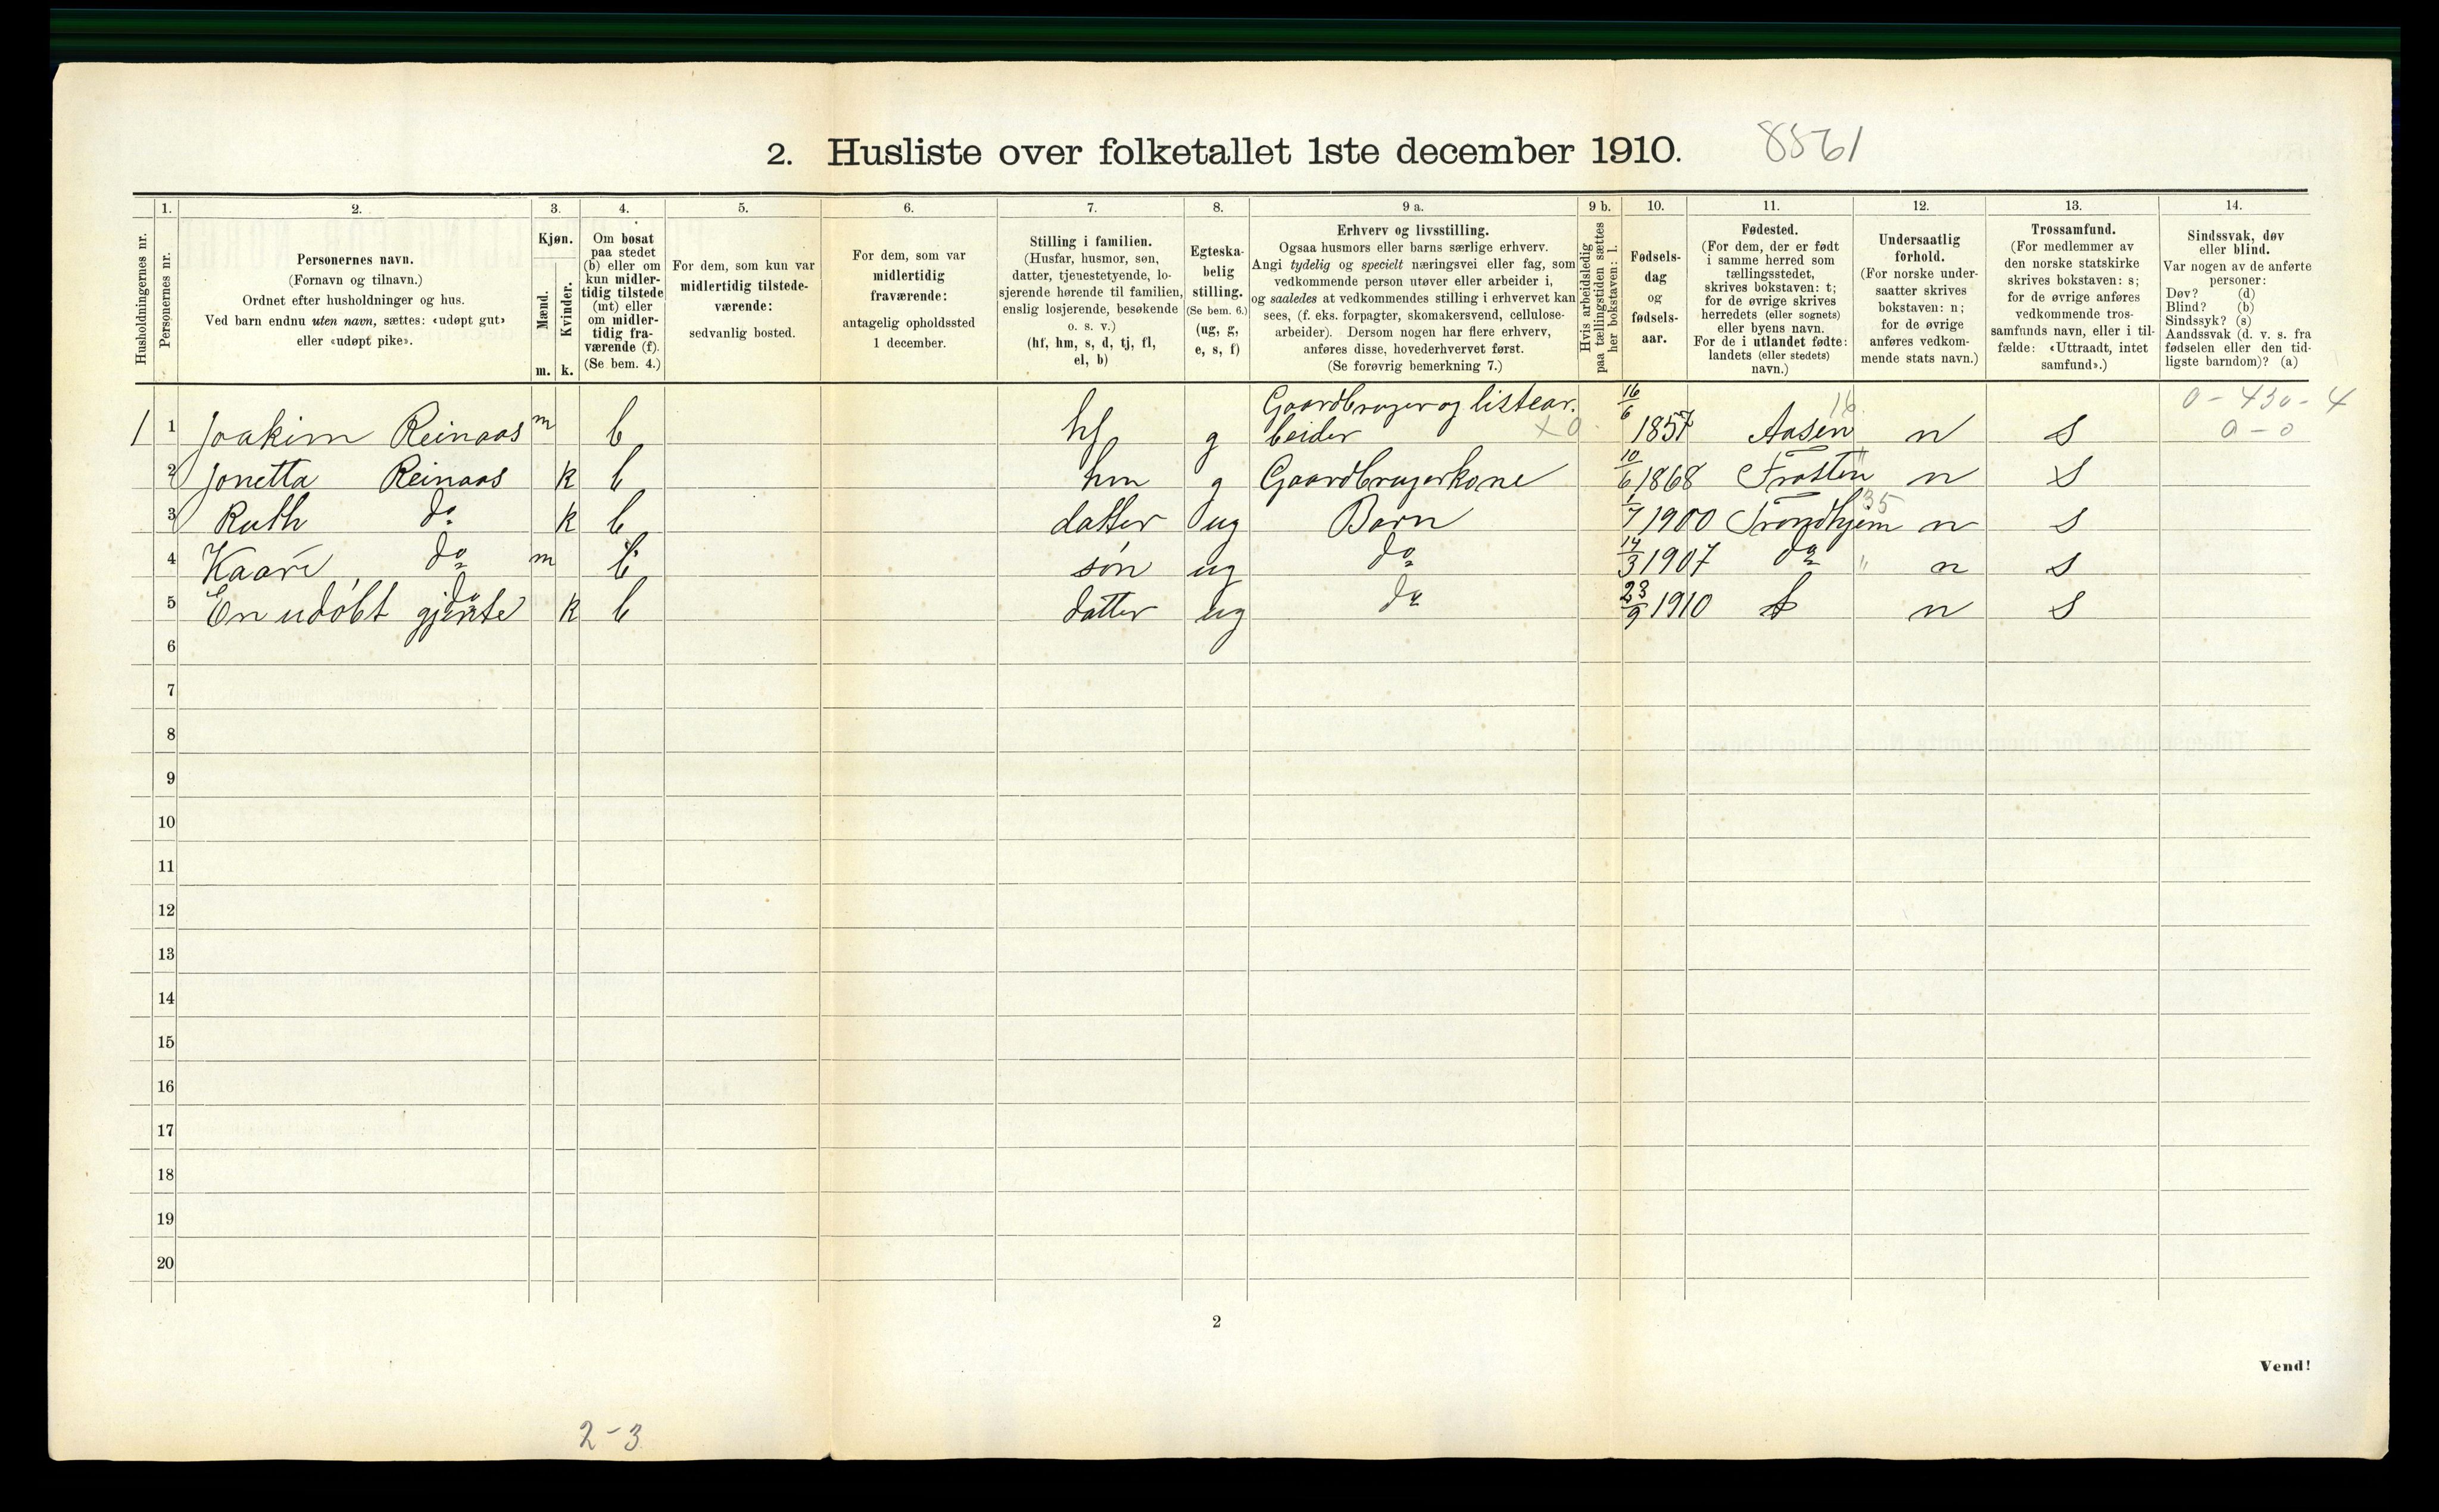 2. Husliste over folketallet 1ste december 1910.
8561
Husholdningernes nr.
1.
Personernes nr.
2.
Personernes navn.
(Fornavn og tilnavn.)
Ordnet efter husholdninger og hus.
Ved barn endnu uten navn, sættes: «udøpt gut»
eller «udøpt pike».
3.
Kjøn.
Mænd.
Kvinder.
m. k.
4.
Om bosat
paa stedet
(b) eller om
kun midler-
tidig tilstede
(mt) eller
om midler-
tidig fra-
værende (f).
(Se bem. 4.)
5.
For dem, som kun var
midlertidig tilstede-
værende:
sedvanlig bosted.
6.
For dem, som var
midlertidig
fraværende:
antagelig opholdssted
1 december.
7.
Stilling i familien.
(Husfar, husmor, søn,
datter, tjenestetyende, lo-
sjerende hørende til familien,
enslig losjerende, besøkende
o. s. v.)
(hf, hm, s, d, tj, fl,
el, b)
8.
Egteska-
belig
stilling.
(Se bem. 6.)
(ug, g,
e, s, f)
9 a.
Erhverv og livsstilling.
Ogsaa husmors eller barns særlige erhverv.
Angi tydelig og specielt næringsvei eller fag, som
vedkommende person utøver eller arbeider i,
og saaledes at vedkommendes stilling i erhvervet kan
sees, (f. eks. forpagter, skomakersvend, cellulose-
arbeider). Dersom nogen har flere erhverv,
anføres disse, hovederhvervet først.
(Se forøvrig bemerkning 7.)
9 b.
Hvis arbeidsledig
paa tællingstiden sættes
her bokstaven: l.
10.
Fødsels-
dag
og
fødsels-
aar.
11.
Fødested.
(For dem, der er født
i samme herred som
tællingsstedet,
skrives bokstaven: t;
for de øvrige skrives
herredets (eller sognets)
eller byens navn.
For de i utlandet fødte:
landets (eller stedets)
navn.)
12.
Undersaatlig
forhold.
(For norske under-
saatter skrives
bokstaven: n;
for de øvrige
anføres vedkom-
mende stats navn.)
13.
Trossamfund.
(For medlemmer av
den norske statskirke
skrives bokstaven: s;
for de øvrige anføres
vedkommende tros-
samfunds navn, eller i til-
fælde: «Uttraadt, intet
samfund».)
14.
Sindssvak, døv
eller blind.
Var nogen av de anførte
personer:
Døv? (d)
Blind? (b)
Sindssyk? (s)
Aandssvak (d. v. s. fra
fødselen eller den tid-
ligste barndom)? (a)
0 - 430 - 4
0 - 0
1 1 Joakim Reinaas m b hf g Gaardbruger og listear. beider x 0 16/6 1857 Aasen 16 n s
2 Jonetta Reinaas k b hm g Gaardbrugerkone 10/6 1868 Frosten " n s
3 Ruth do k b datter ug Barn 1/7 1900 Trondhjem 35 n s
4 Kaare do m b søn ug do 14/3 1907 do " n s
5 En udøbt gjente do k b datter ug do 23/9 1910 t n s
6
7
8
9
10
11
12
13
14
15
16
17
18
19
20
2
Vend!
2-3